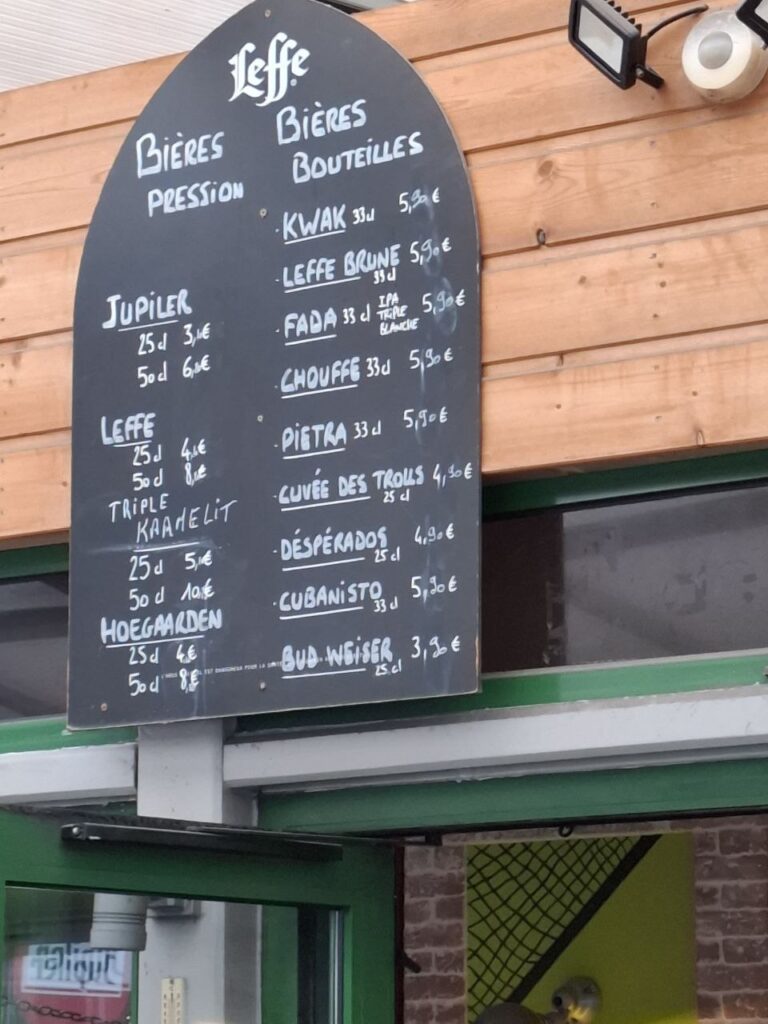 Leffe
BIÈRES
PRESSION
JUPILER
25cl 3,
50cl 6,
LEFFE
25cl 4,
50cl 8,
TRIPLE
KARMELIT
25cl 5,
50cl 10,
HOEGAARDEN
25cl 4€
50cl 8€
BIÈRES
BOUTEILLES
- KWAK 33cl 5,90€
- LEFFE BRUNE 33cl 5,90€
- FADA 33cl IPA TRIPLE BLANCHE 5,90€
- CHOUFFE 33cl 5,90€
- PIETRA 33cl 5,90€
- CUVÉE DES TROLLS 25cl 4,90€
- DÉSPÉRADOS 25cl 4,90€
- CUBANISTO 33cl 5,90€
- BUDWEISER 25cl 3,90€
Jupiler